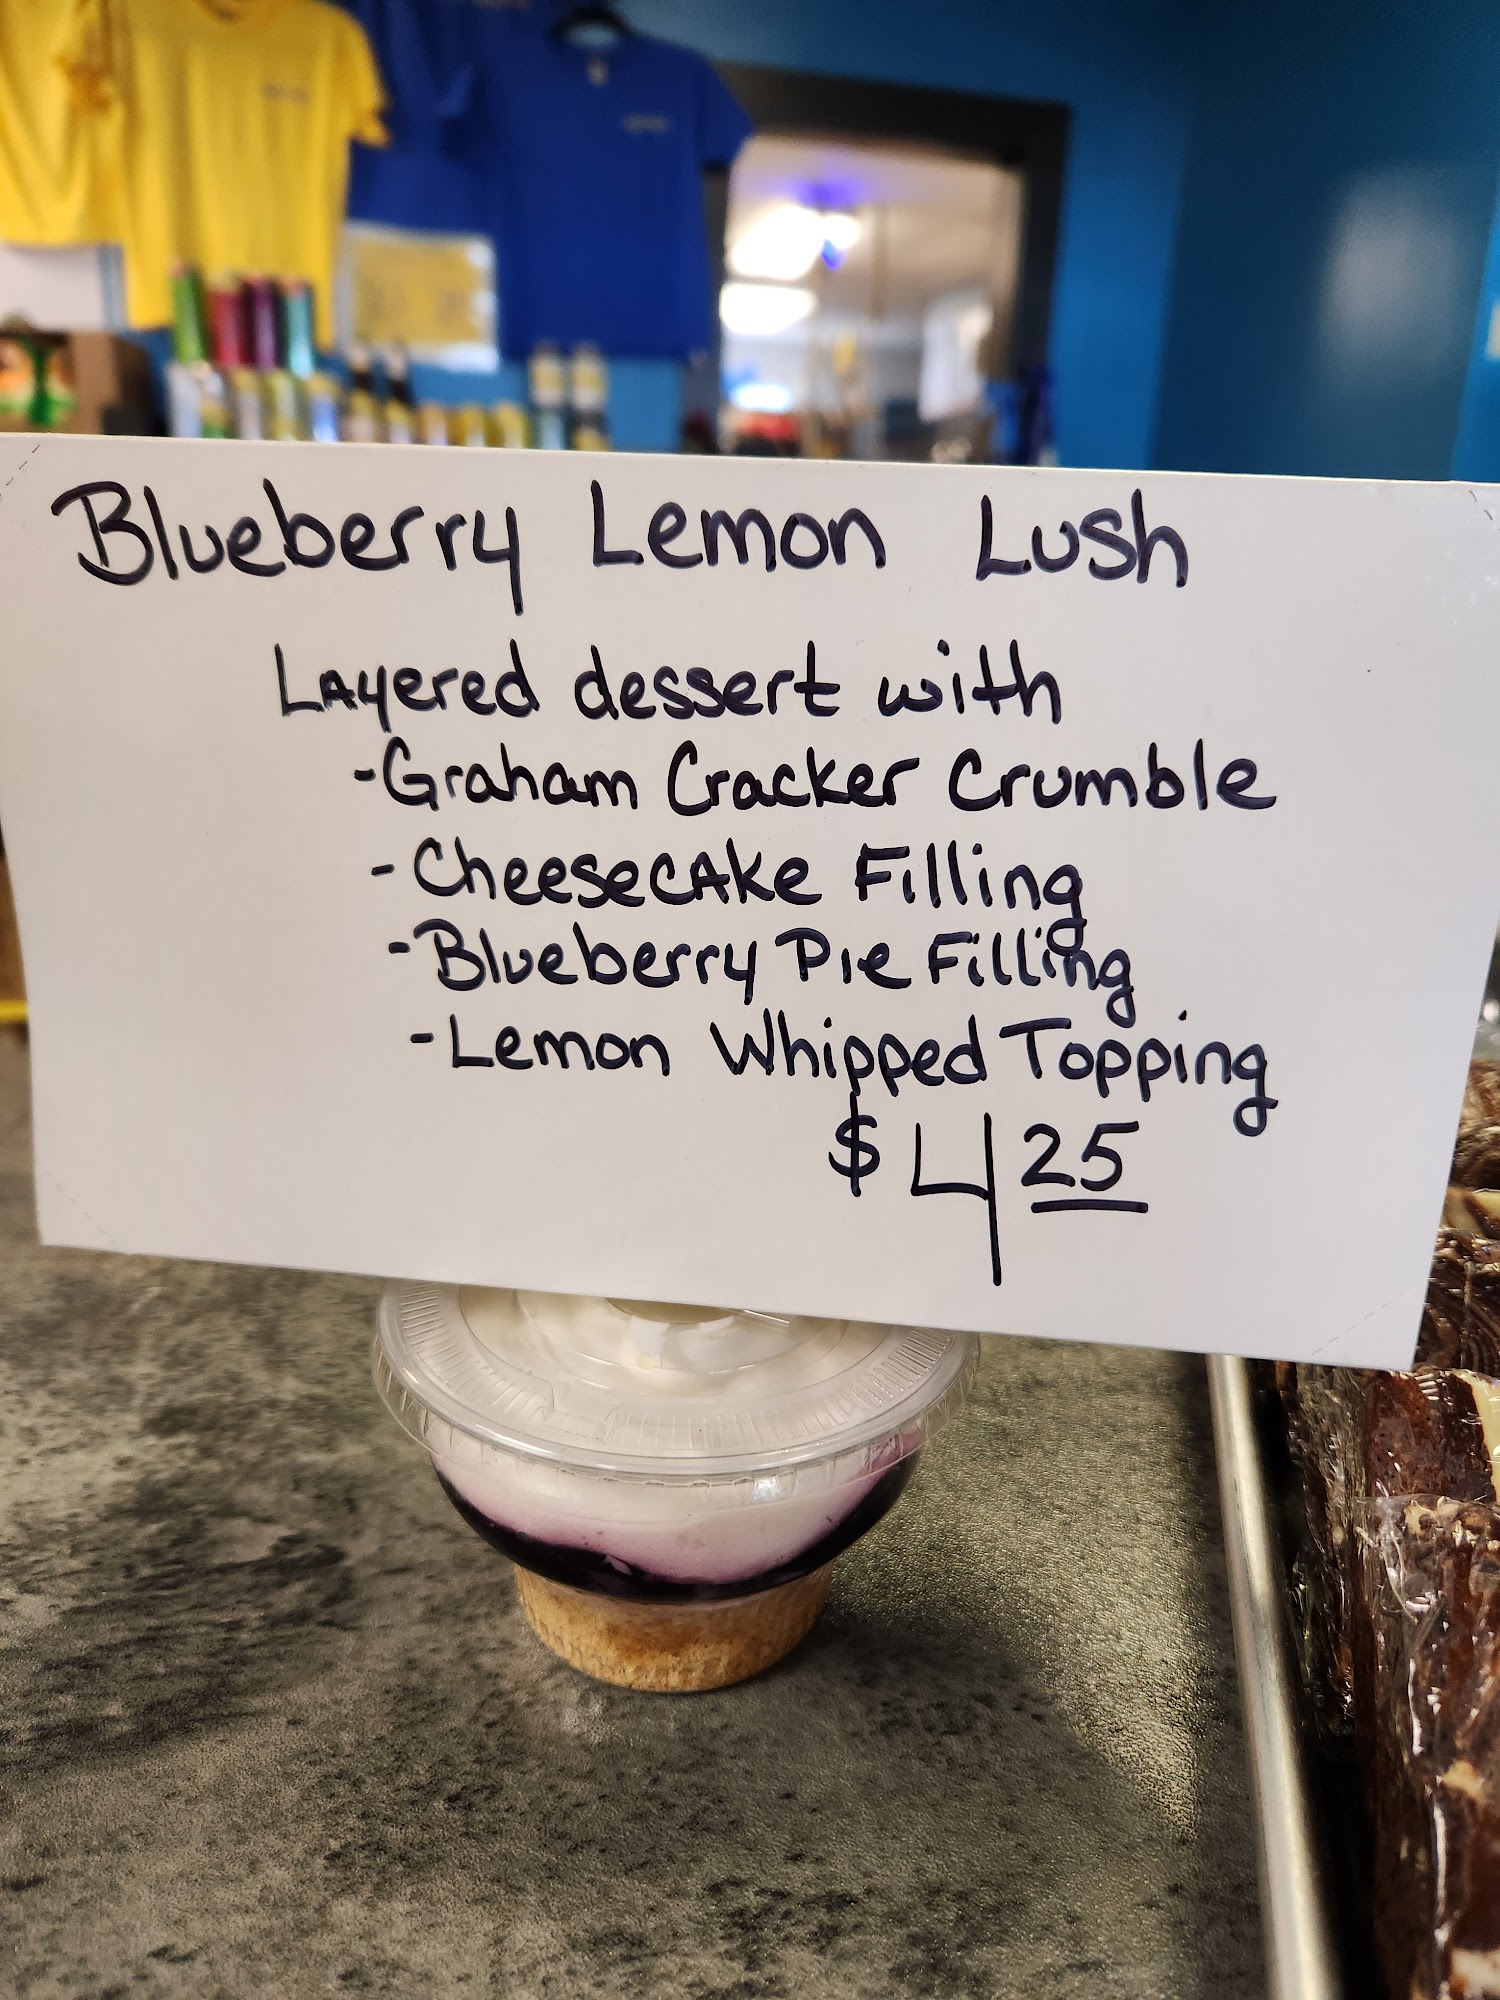 Blueberry Lemon Lush
Layered dessert with
-Graham Cracker Crumble
-Cheesecake Filling
-Blueberry Pie Filling
-Lemon Whipped Topping
$4 25